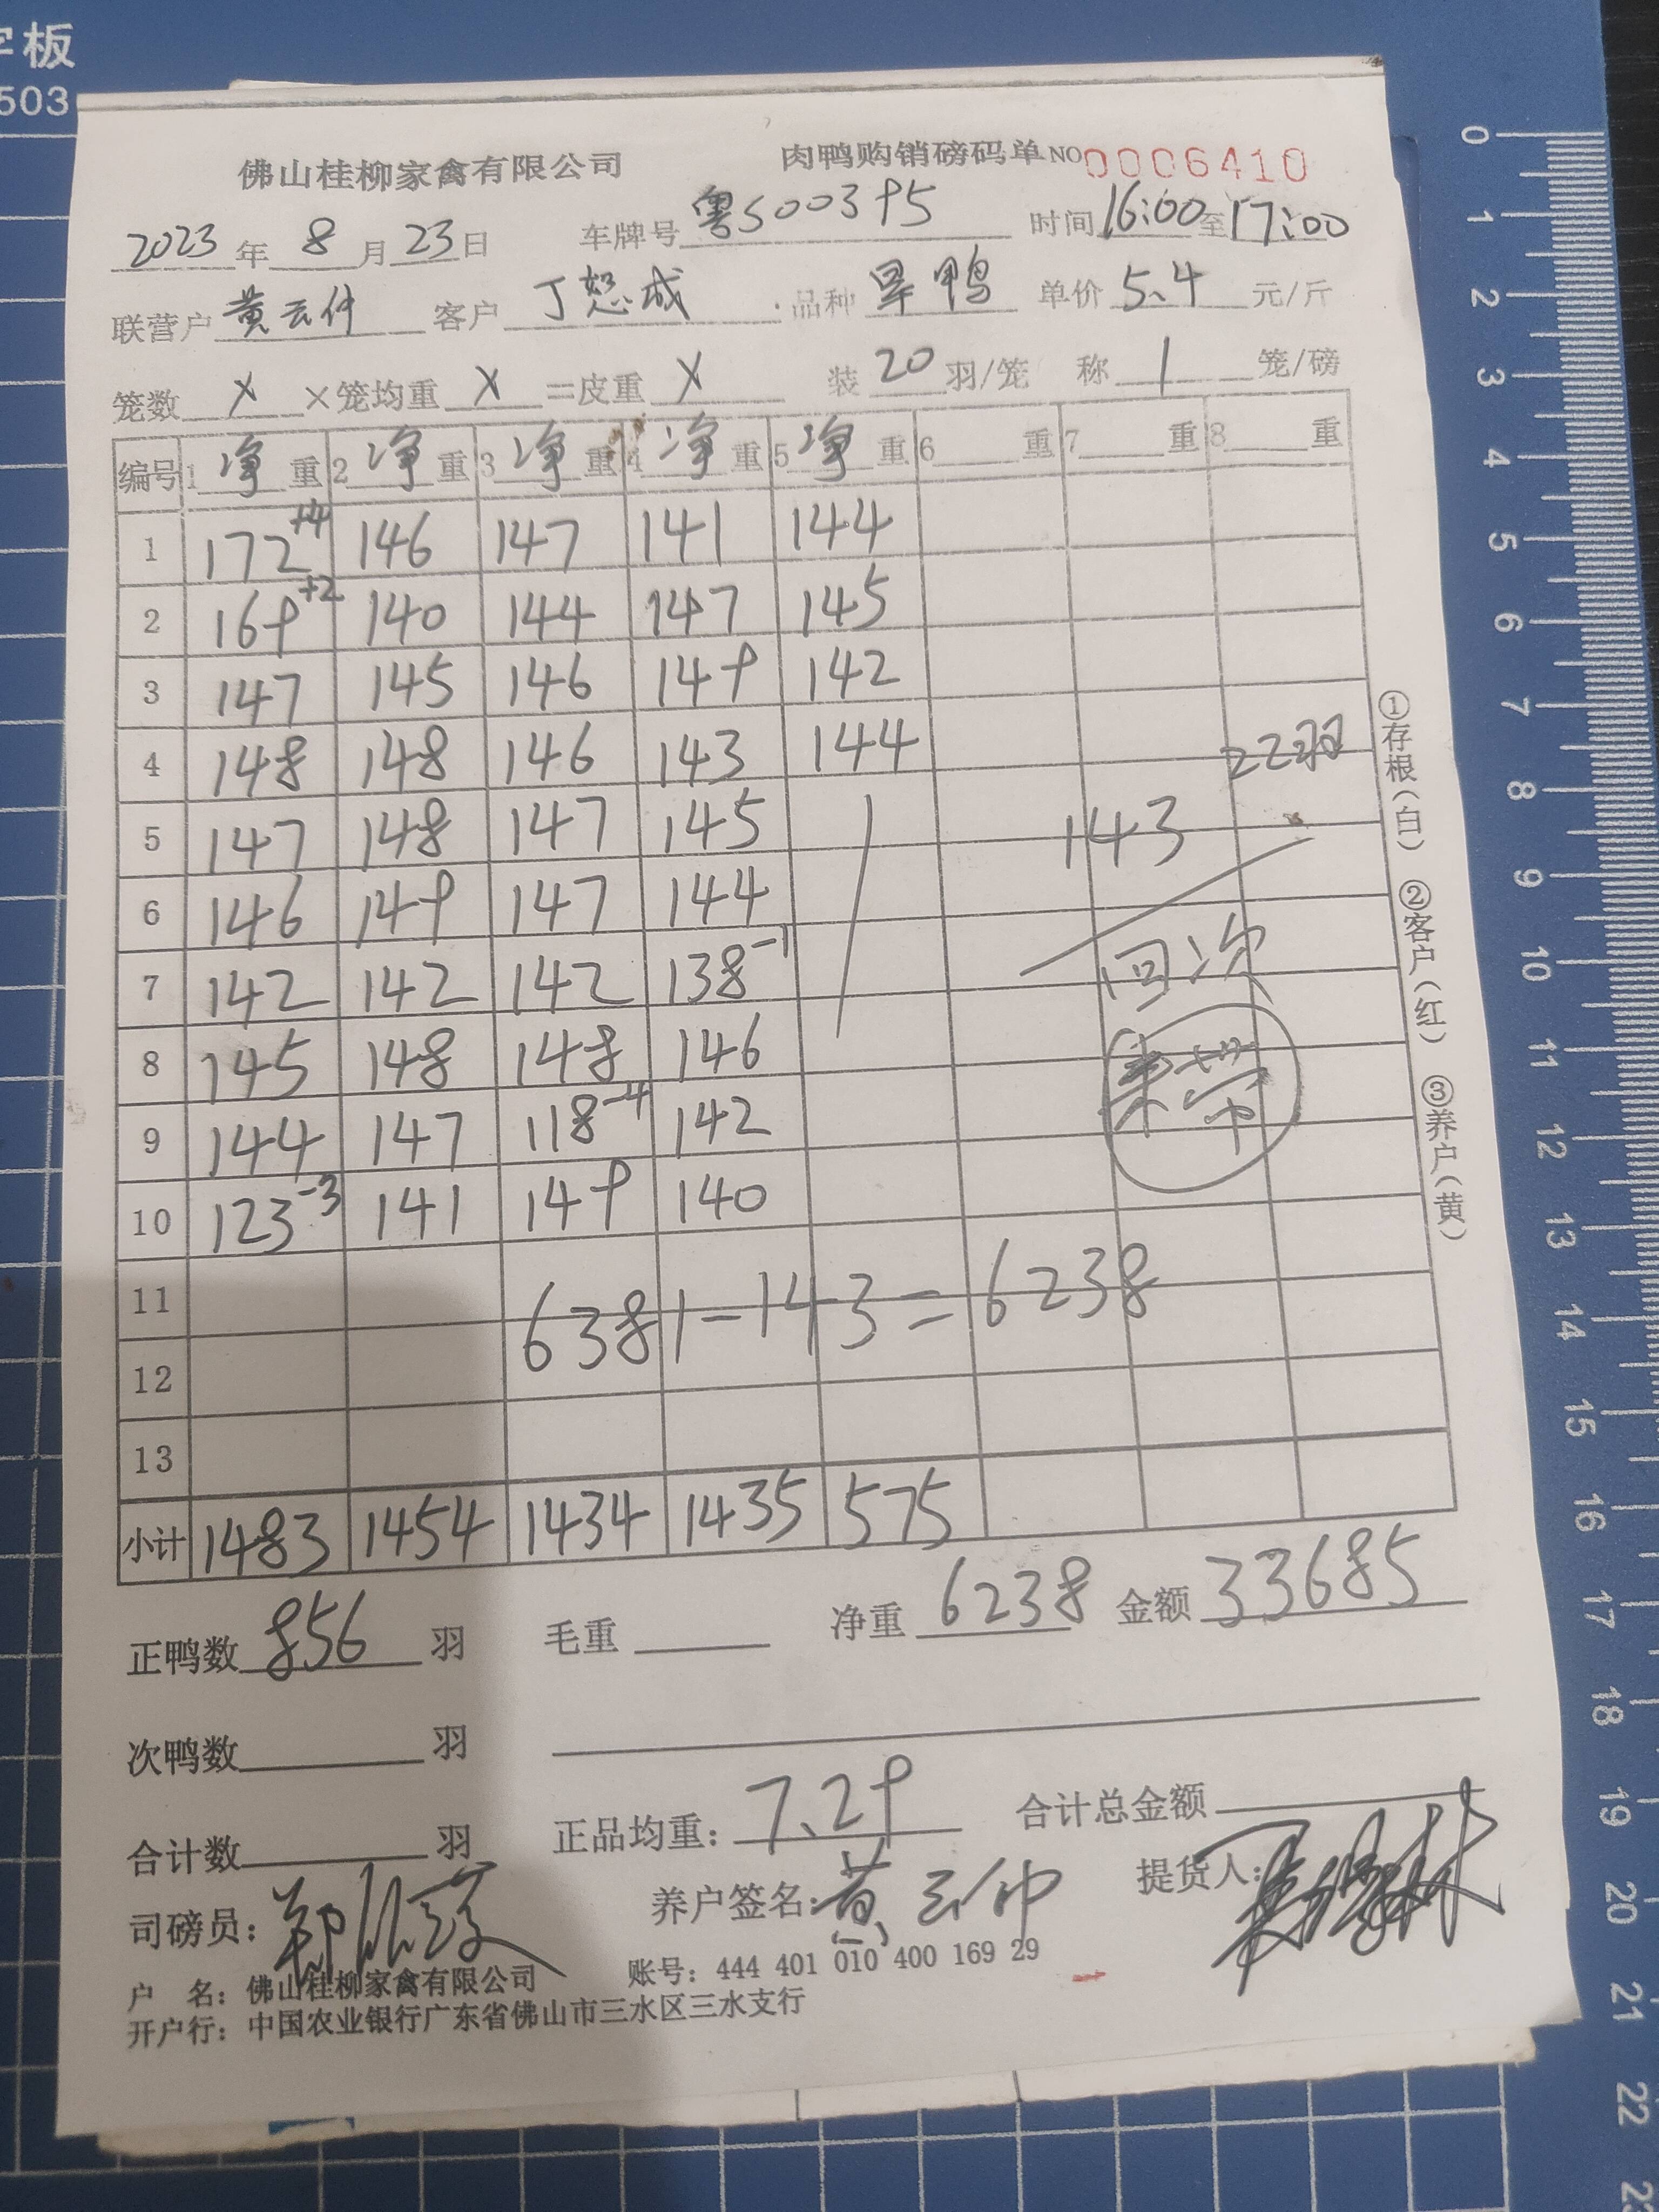 字板
503
佛山桂柳家禽有限公司 肉鸭购销磅码单NO 0006410
2023年 8月23日 车牌号 粤S00395 时间16:00至17:00
联营户 黄云仲 客户 丁恕成 品种 旱鸭 单价 5.4 元/斤
笼数 X ×笼均重 X =皮重 X 装 20 羽/笼 称 1 笼/磅
编号 1净重 2净重 3净重 4净重 5净重 6 重 7 重 8 重
1 172+4 146 147 141 144
2 169+2 140 144 147 145
3 147 145 146 149 142
4 148 148 146 143 144 22羽
5 147 148 147 145 143
6 146 149 147 144
7 142 142 142 138-1 回次
8 145 148 148 146
9 144 147 118-4 142
10 123-3 141 149 140
11 6381-143=6238
12
13
小计 1483 1454 1434 1435 575
①存根(白) ②客户(红) ③养户(黄)
正鸭数 856 羽 毛重 净重 6238 金额 33685
次鸭数 羽
合计数 羽 正品均重: 7.29 合计总金额
司磅员: 养户签名: 黄云仲 提货人:
户 名: 佛山桂柳家禽有限公司 账号: 444 401 010 400 169 29
开户行: 中国农业银行广东省佛山市三水区三水支行
0
1
2
3
4
5
6
7
8
9
10
11
12
13
14
15
16
17
18
19
20
21
22
23